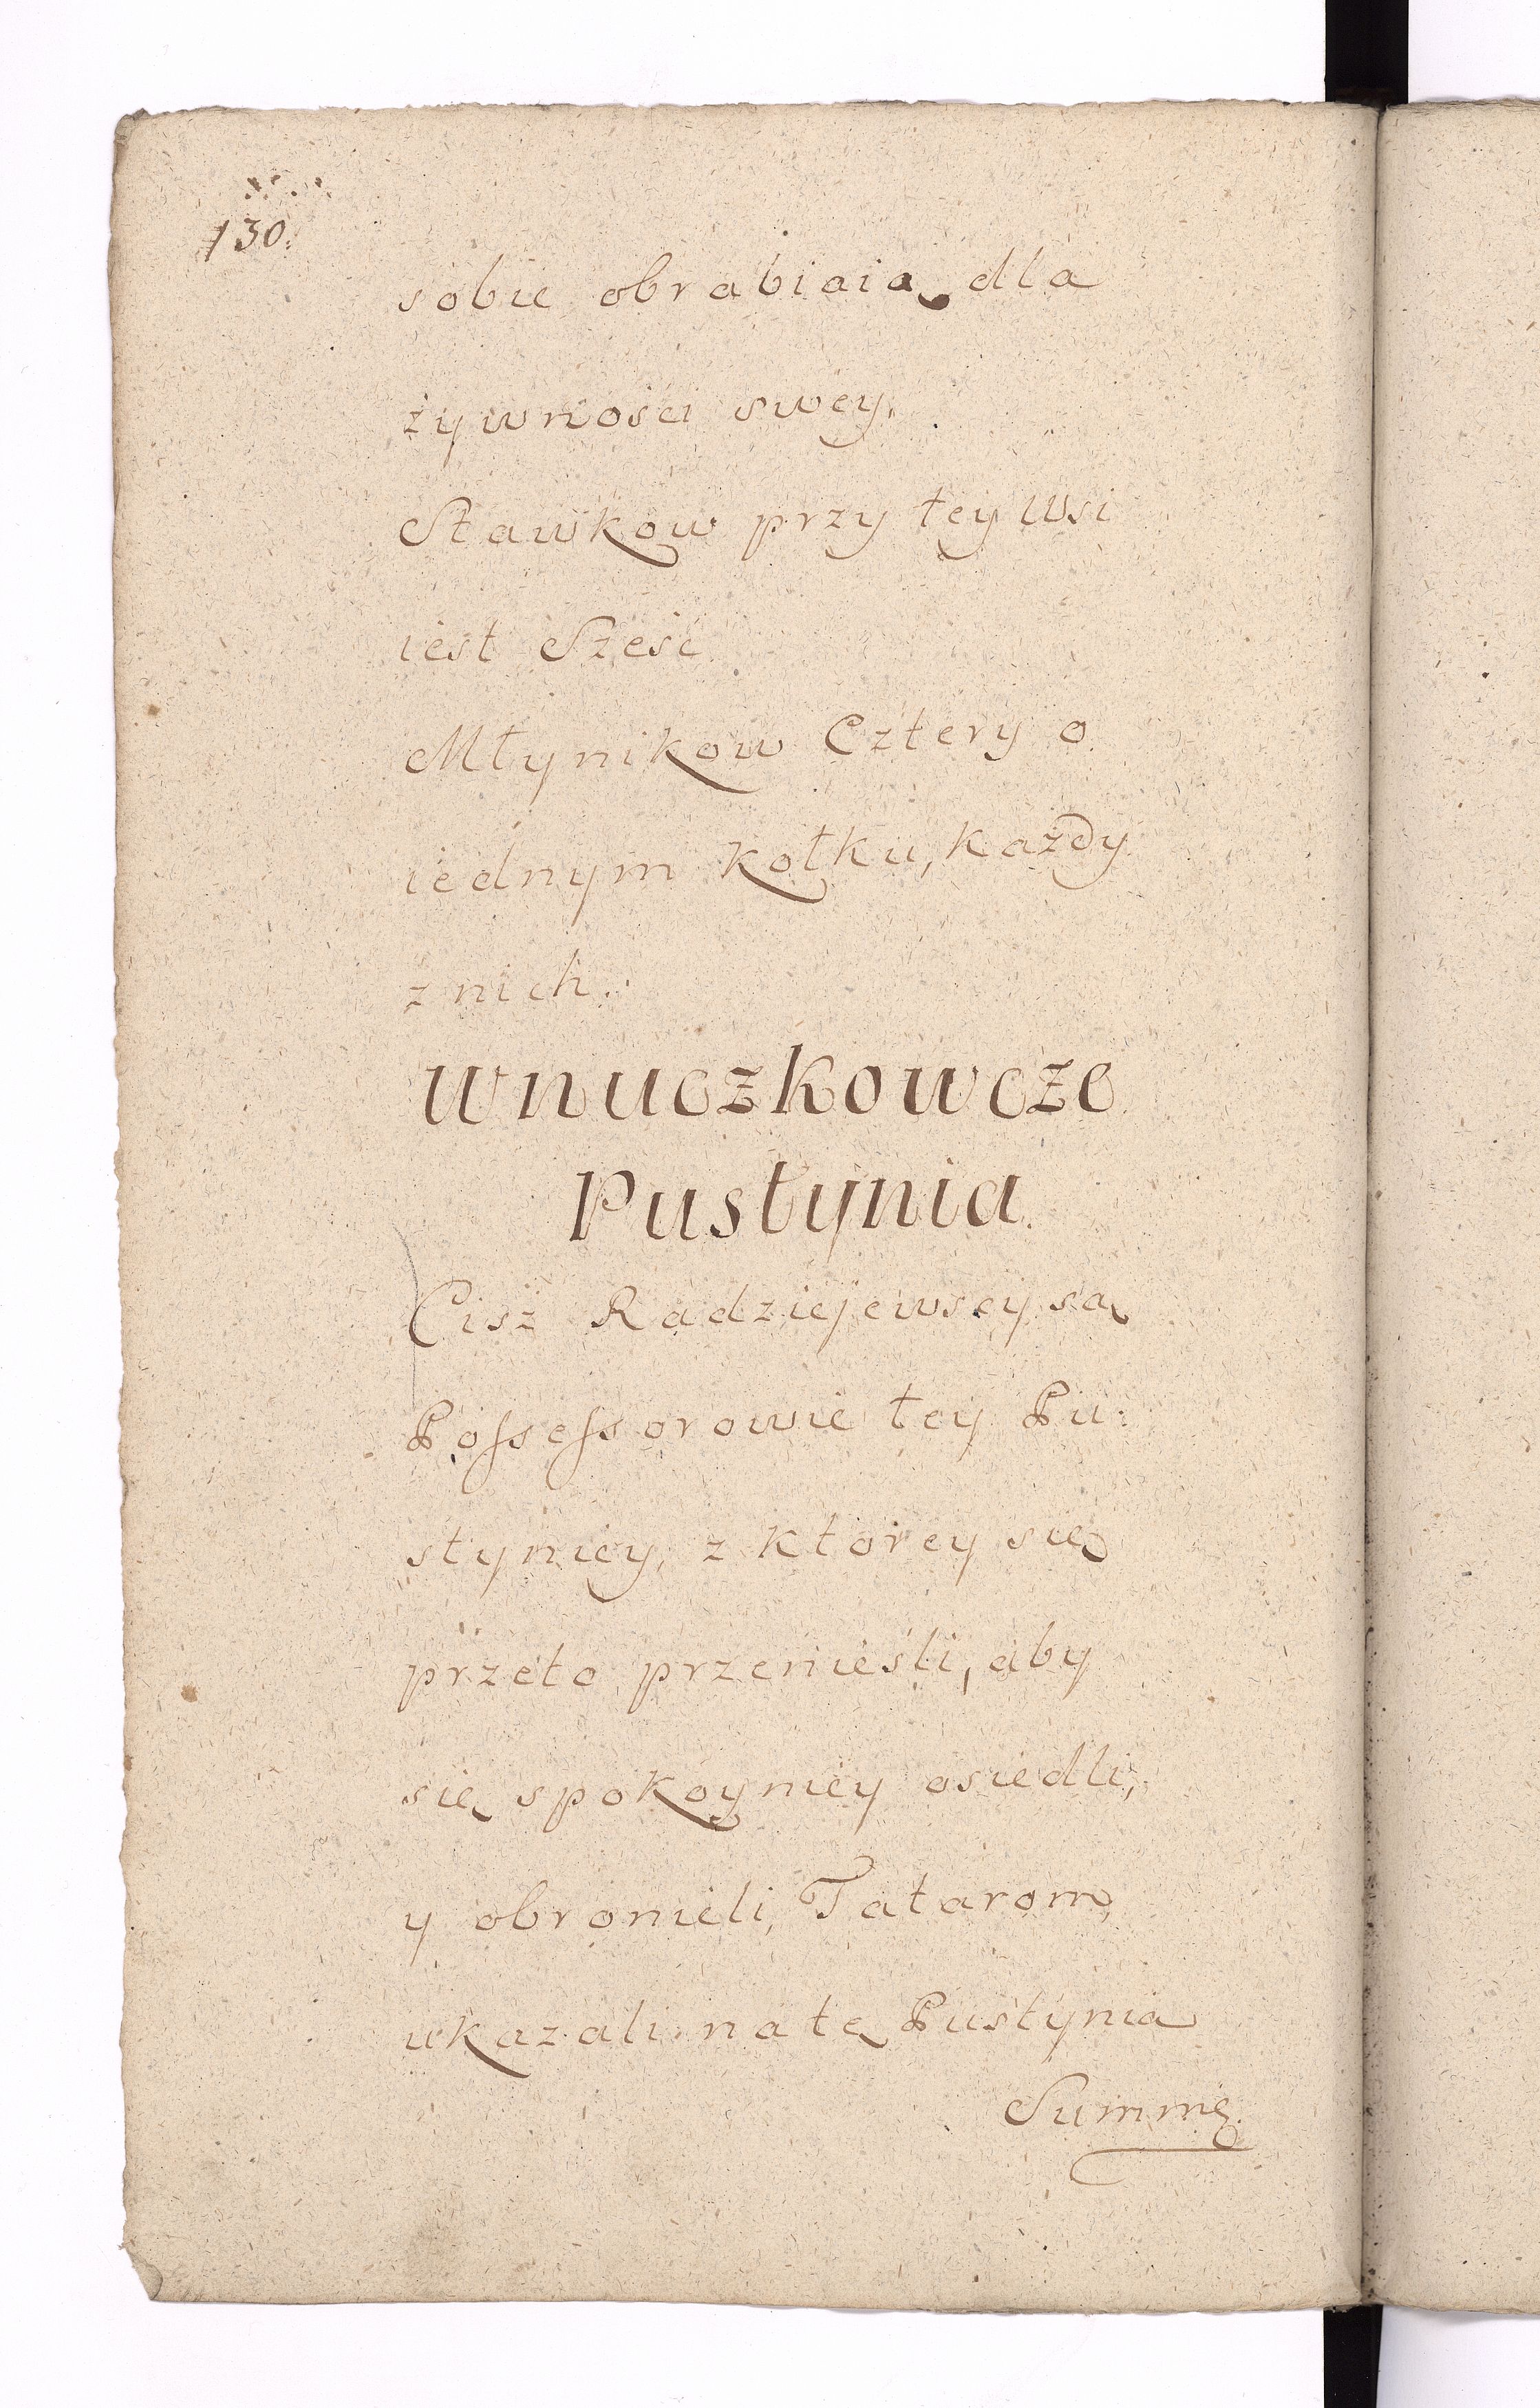 130.
sobie obrabiaią dla
żywności swey.
Stawkow przy tey Wsi
iest Sześć
Młynikow Cztery o
iednym kołku, każdy
z nich.
Wnuczkowcze
Pustynia.
Cisz Radziejewscy są
Possessorowie tey Pu:
styniey, z ktorey się
przeto przenieśli, aby
się spokoyniey osiedli,
y obronieli, Tatarom,
ukazali na tę Pustynia
Summę.